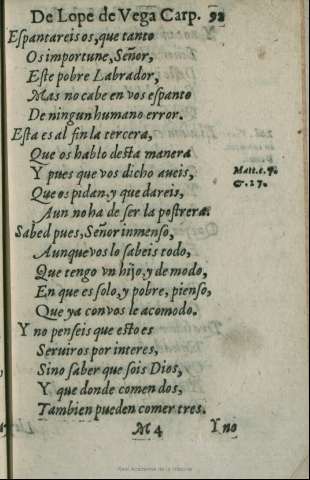 De Lope de Vega Carp. 92
Espantareisos, que tanto
Os importune, Señor,
Este pobre Labrador,
Mas no cabe en vos espanto
De ningun humano error.
Esta es al fin la tercera,
Que os hablo desta manera
Y pues que vos dicho aueis,
Matt. c. 7.
Que os pidan, y que dareis,
& 17.
Aun no ha de ser la postrera.
Sabed pues, Señor inmenso,
Aunque vos lo sabeis todo,
Que tengo vn hijo, y de modo,
En que es solo, y pobre, pienso,
Que ya con vos le acomodo.
Y no penseis que esto es
Seruiros por interes,
Sino saber que sois Dios,
Y que donde comen dos,
Tambien pueden comer tres.
M 4 Y no
Real Academia de la Historia